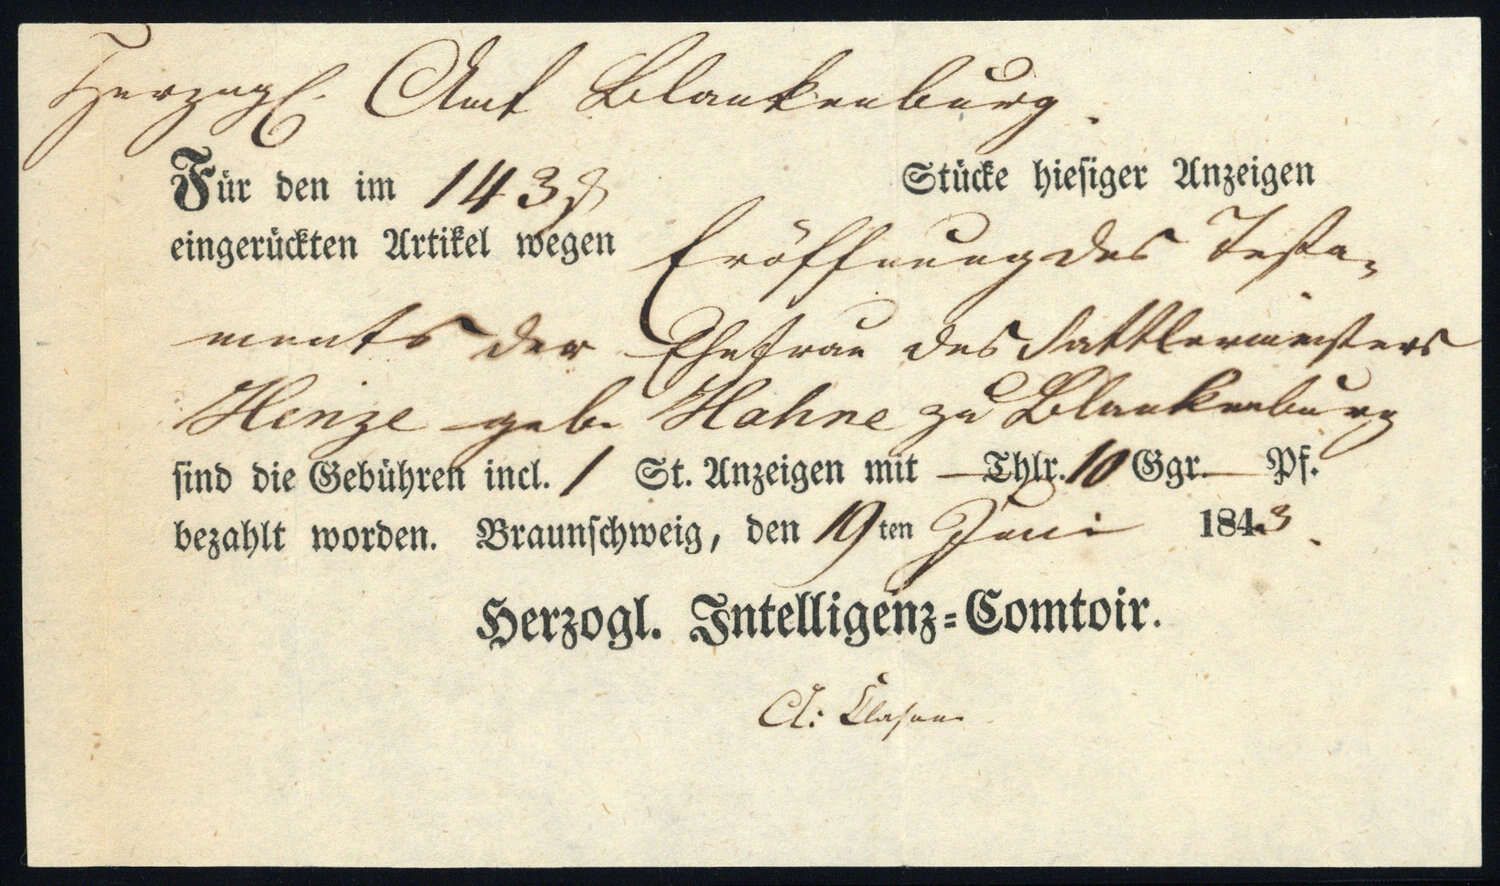 Herzogl. Amt Blankenburg.
Für den im 143 Stücke hiesiger Anzeigen
eingerückten Artikel wegen Eröffnung des Testa-
ments der Ehefrau des Sattlermeisters
Henze geb. Hahne zu Blankenburg
sind die Gebühren incl. 1 St. Anzeigen mit — Thlr. 10 Ggr. — Pf.
bezahlt worden. Braunschweig, den 19ten Juni 1843.
Herzogl. Intelligenz-Comtoir.